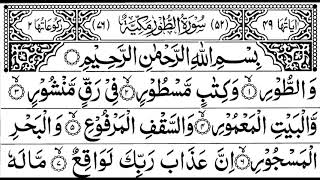 اٰيَاتُهَا ۴۹ (۵۲) سُوْرَةُ الطُّوْرِ مَكِّيَّةٌ (۷۶) رُكُوْعَاتُهَا ۲
بِسْمِ اللّٰهِ الرَّحْمٰنِ الرَّحِيْمِ
وَ الطُّوْرِ ۱ وَ كِتٰبٍ مَّسْطُوْرٍ ۲ فِیْ رَقٍّ مَّنْشُوْرٍ ۳
وَّ الْبَيْتِ الْمَعْمُوْرِ ۴ وَ السَّقْفِ الْمَرْفُوْعِ ۵ وَ الْبَحْرِ
الْمَسْجُوْرِ ۶ اِنَّ عَذَابَ رَبِّكَ لَوَاقِعٌ ۷ مَّا لَهٗ